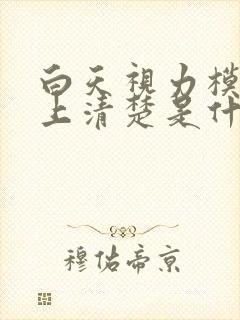 白天视力模
上清楚是什
穆佑帝京